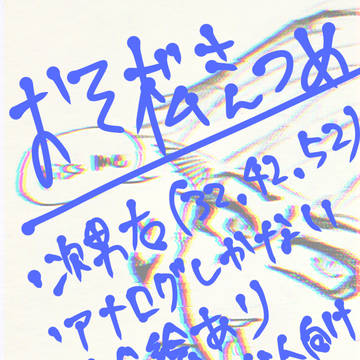 おそ松さんつめ
・次男右(32,42,52)
・アナログしかない
絵あり
向け